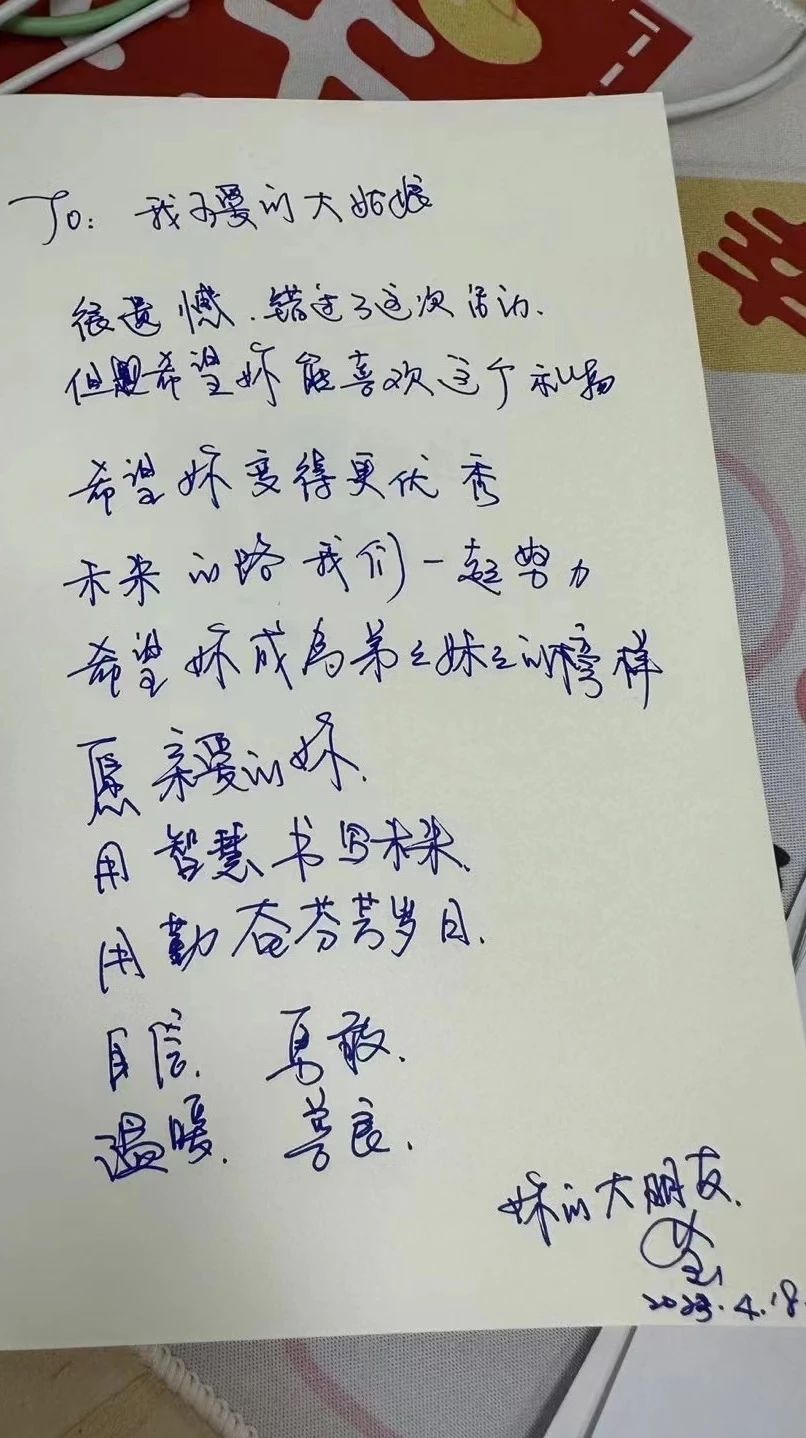 To: 我可爱的大姑娘
很遗憾.错过了这次活动.
但是希望妳能喜欢这个礼物
希望妳变得更优秀
未来的路我们一起努力
希望妳成为弟弟妹妹的榜样
愿亲爱的妳.
用智慧书写未来.
用勤奋芬芳岁月.
自信. 勇敢.
温暖. 善良.
妳的大朋友.
2023.4.18.